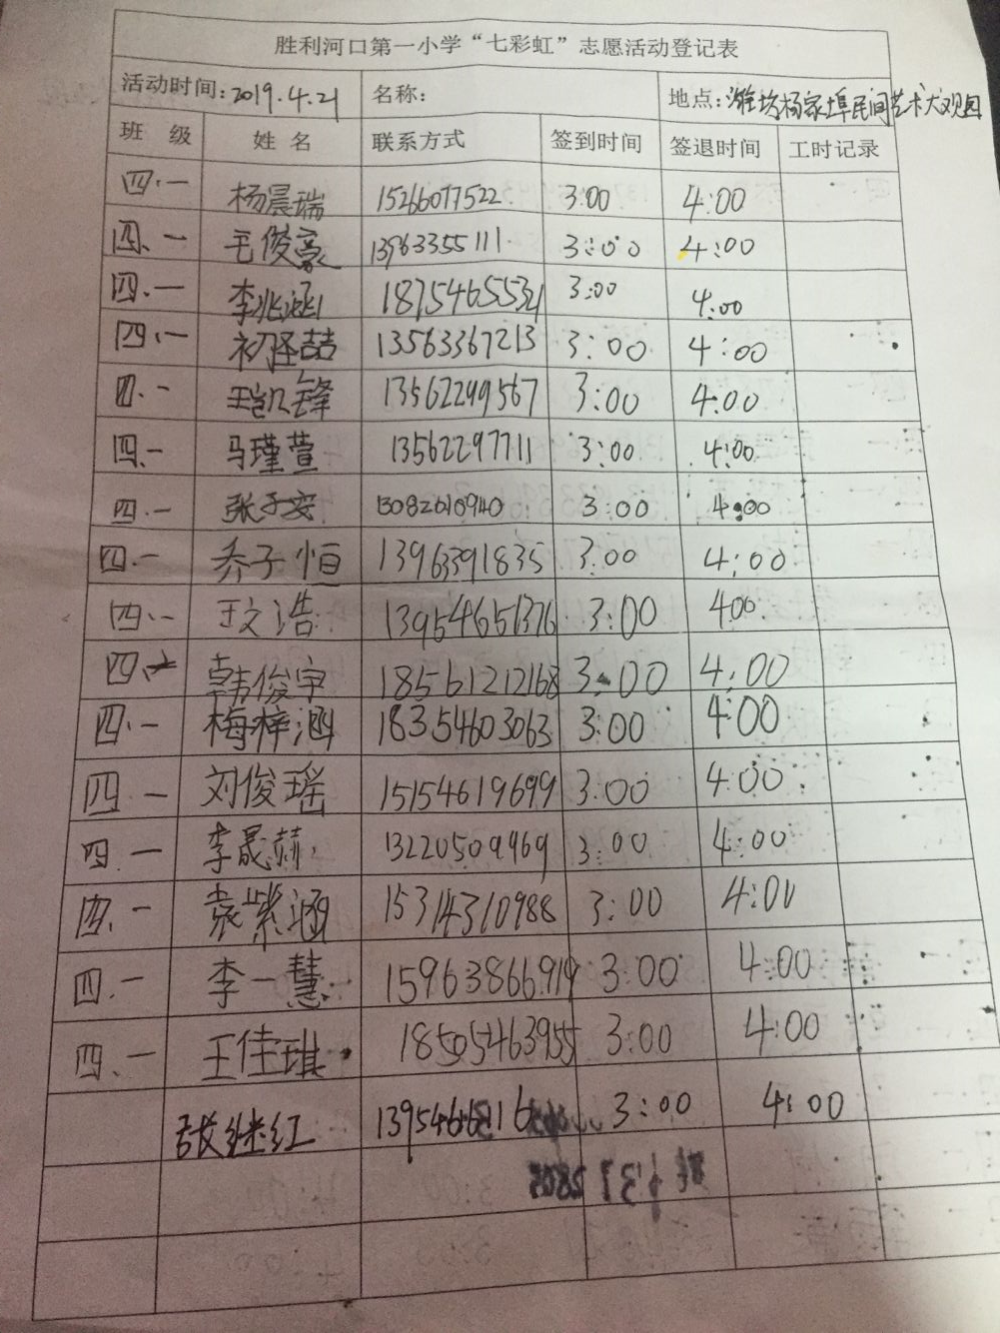 胜利河口第一小学“七彩虹”志愿活动登记表
活动时间：2019.4.21 名称： 地点：潍坊杨家埠民间艺术大观园
班 级 姓 名 联系方式 签到时间 签退时间 工时记录
四.一 杨晨瑞 15266077522 3:00 4:00
四.一 毛俊豪 13963355111 3:00 4:00
四.一 李兆涵 3:00 4:00
四.一 初怿喆 13563367213 3:00 4:00
四.一 王凯锋 13562299567 3:00 4:00
四.一 马瑾萱 13562297711 3:00 4:00
四.一 张子安 13082610940 3:00 4:00
四.一 乔子恒 13963391835 3:00 4:00
四.一 王文浩 13954651376 3:00 400
四. 韩俊宇 18561212168 3:00 4:00
四.一 梅梓涵 18354603063 3:00 4:00
四一 刘俊瑶 15154619699 3:00 4:00
四.一 李晟赫 13220509969 3:00 4:00
四.一 袁紫涵 15314310988 3:00 4:00
四.一 李一慧 15963866919 3:00 4:00
四.一 王佳琪 18505463955 3:00 4:00
继红 3:00 4:00